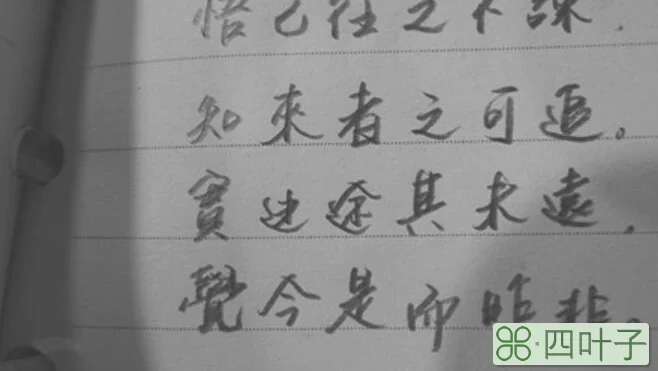 悟已往之不諫，
知來者之可追。
實迷途其未遠，
覺今是而昨非。
四叶子